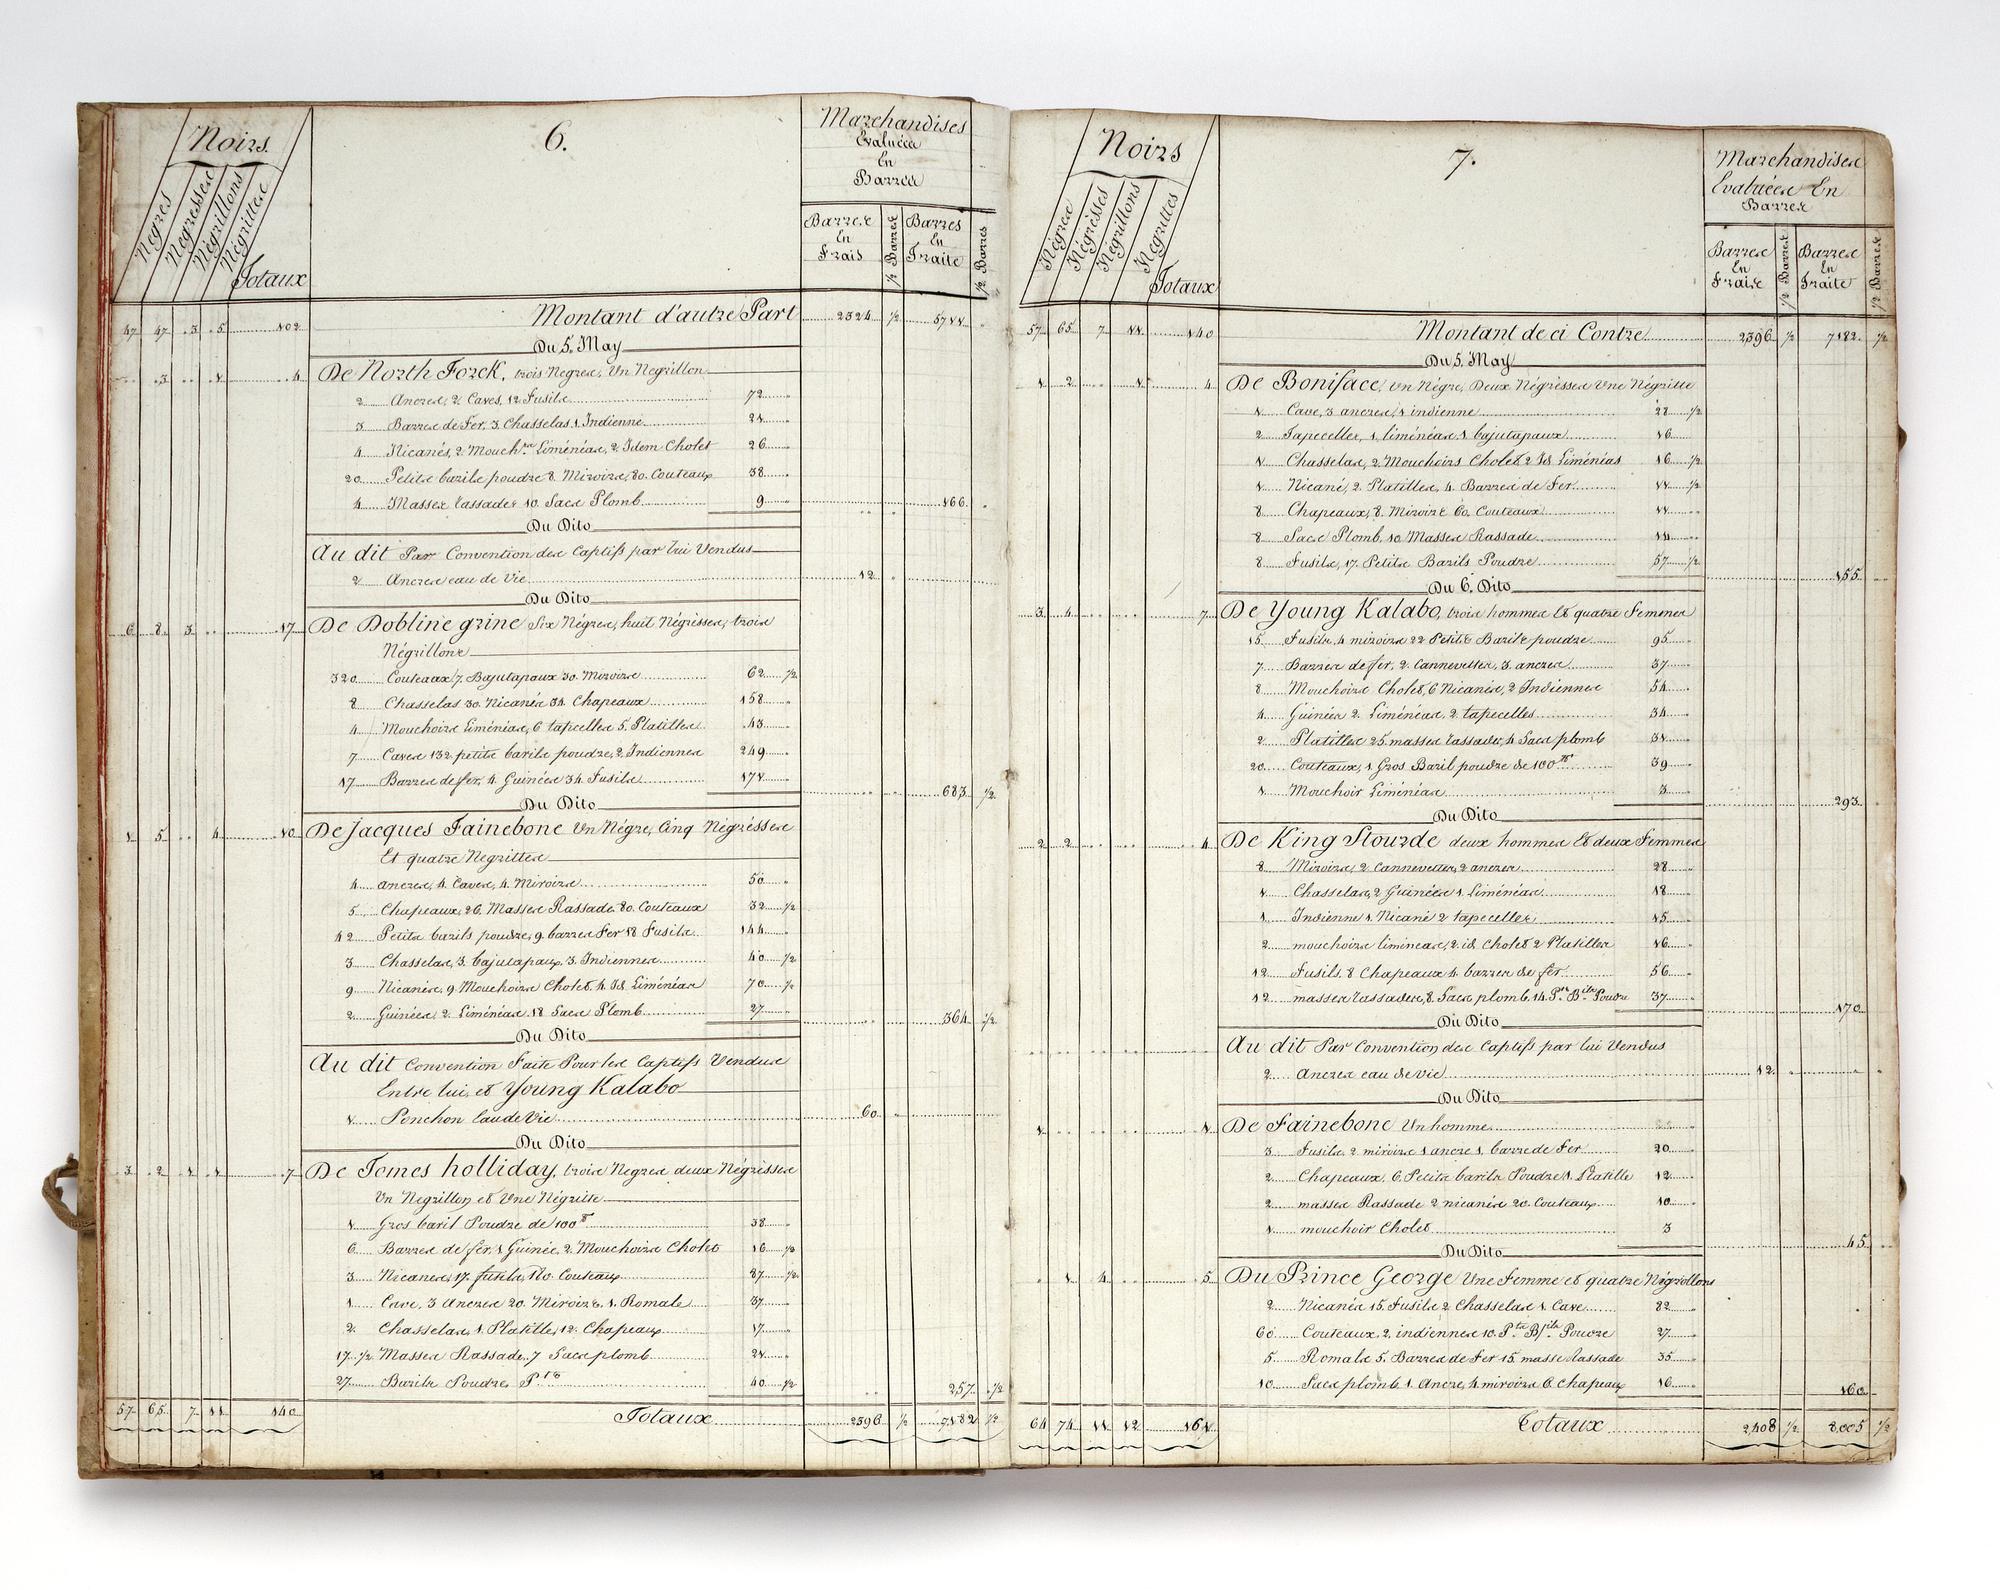 Noirs.
6.
Marchandises
Evaluées
En
Barres
Négres
Négresses
Négrillons
Négrittes
Totaux
Barres En Frais
½ Barres
Barres En Traite
½ Barres
47 47 3 5 102 Montant d'autre Part 2324 ½ 5711
Du 5. May
3 1 4 De North Forck, trois Negres, Un Negrillon
2 Ancres, 2. Caves, 12. Fusils 72
3 Barres de Fer, 3. Chasselas 1. Indienne 21
4 Nicanés, 2. Mouch.rs Liménéas, 2. Idem Cholet 26
20 Petits barils poudre 8. Miroirs, 80. Couteaux 38
4 Masses rassades 10. Sacs Plomb 9
166
Du Dito
Au dit Par Convention des Captifs par lui Vendus
2 Ancres eau de Vie 12
Du Dito
6 8 3 17 De Dobline grine Six Négres, huit Négrésses, trois
Négrillons
320 Couteaux, 7. Bajutapaux 30. Miroirs 62 ½
8 Chasselas 30. Nicanés 34. Chapeaux 158
4 Mouchoirs Liménéas, 6 tapcelles 5. Platilles 43
7 Caves 132. petits barils poudre, 2. Indiennes 249
17 Barres de fer, 4. Guinées 34. Fusils 171
683 ½
Du Dito
1 5 4 10 De Jacques Fainebone Un Négre, Cinq Négrésses
Et quatre Negrittes
4 ancres, 4. Caves, 4. Miroirs 50
5 Chapeaux, 26. Masses Rassade 80. Couteaux 32 ½
42 Petits barils poudre, 9. barres Fer 18 Fusils 144
3 Chasselas, 3. bajutapaux, 3. Indiennes 40 ½
9 Nicanés, 9. Mouchoirs Cholet. 4. Id. Liménéas 70 ½
2 Guinées, 2. Liménéas. 18 Sacs Plomb 27
364 ½
Du Dito
Au dit Convention Faite Pour les Captifs Vendus
Entre lui, et Young Kalabo
1 Ponchon Eau de Vie 60
Du Dito
3 2 1 1 7 De Tomes holliday, trois Negres deux Négrésses
Un Negrillon et Une Négritte
1 Gros baril Poudre de 100 38
6 Barres de fer, 1 Guinée, 2. Mouchoirs Cholet 16 ½
3 Nicanes, 17. fusils, 110. Couteaux 87 ½
1 Cave, 3 Ancres 20. Miroirs. 1. Romale 37
2 Chasselas, 1. Platille, 12. Chapeaux 17
17 ½ Masses Rassade, 7 Sacs plomb 21
27 Barils Poudres P.ts 40 ½
257 ½
57 65 7 11 140 Totaux 2396 ½ 7182 ½
Noirs
7.
Marchandises
Evaluées En
Barres
Négres
Négrésses
Négrillons
Negrittes
Totaux
Barres En Frais
½ Barres
Barres En Traite
½ Barres
57 65 7 11 140 Montant de ci Contre 2396 ½ 7182 ½
Du 5. May
1 2 1 4 De Boniface, Un Négre, Deux Négrésses Une Négritte
1 Cave, 3 ancres, 1 indienne 28 ½
2 Tapcelles, 1. liménéas. 1 bajutapaux 16
1 Chasselas, 2. Mouchoirs Cholet 2 Id Liménéas 16 ½
1 Nicané, 2. Platilles, 4. Barres de Fer 11 ½
8 Chapeaux, 8. Miroirs 60. Couteaux 11
8 Sacs Plomb, 10 Masses Rassade 14
8 Fusils, 17. Petits Barils Poudre 57 ½
155
Du 6. Dito
3 4 7 De Young Kalabo, trois hommes Et quatre Femmes
15 Fusils, 4 miroirs 22 Petits Barils poudre 95
7 Barres de fer, 2. Cannevettes, 3. ancres 37
8 Mouchoirs Cholet, 6 Nicanés, 2 Indiennes 54
4 Guinées 2. Liménéas, 2. tapecelles 34
2 Platilles 25. masses rassades, 4 Sacs plomb 31
20 Couteaux, 1. Gros Baril poudre de 100 39
1 Mouchoir Liménéas 3
293
Du Dito
2 2 4 De King Stourde deux hommes Et deux Femmes
8 Miroirs, 2. Cannevettes, 2 ancres 28
1 Chasselas, 2 Guinées 1. Liménéas 18
1 Indienne 1. Nicané 2 tapecelles 15
2 mouchoirs liméneas, 2. id. Cholet 2 Platilles 16
12 Fusils, 8 Chapeaux 4. barres de fer 56
12 masses rassades, 8. Sacs plomb, 14. P.ts B.ils Poudre 37
170
Du Dito
Au dit Par Convention des Captifs par lui Vendus
2 Ancres eau de vie 12
Du Dito
1 1 De Fainebone Un homme
3 Fusils, 2 miroirs 1 ancre 1. barre de Fer 20
2 Chapeaux, 6. Petits barils Poudre 1. Platille 12
2 masses Rassade 2 nicanés 20. Couteaux 10
1 mouchoir Cholet 3
45
Du Dito
1 4 5 Du Prince George Une Femme et quatre Négrillons
2 Nicanés 15. Fusils 2 Chasselas 1. Cave 82
60 Couteaux, 2, indiennes 10. P.ts B.ils Poudre 27
5 Romals 5. Barres de Fer 15. masse Rassade 35
10 Sacs plomb 1. Ancre, 4. miroirs 6. Chapeaux 16
160
64 74 11 12 161 Totaux 2,408 ½ 8,005 ½